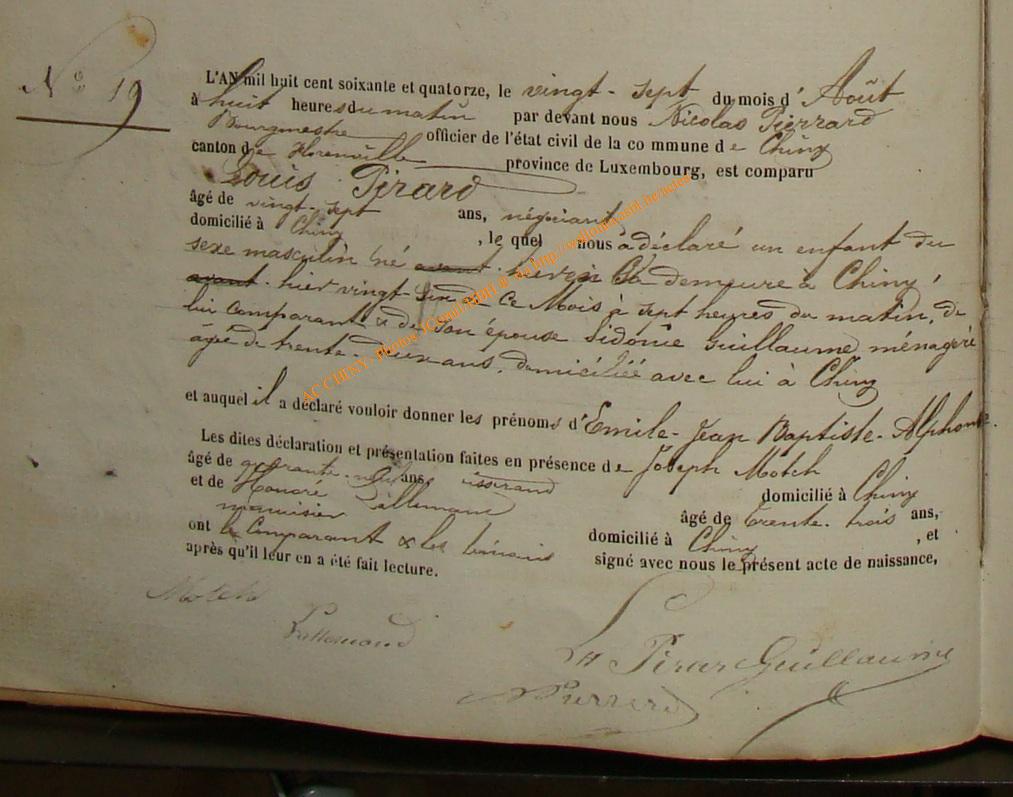 N° 19
L'AN mil huit cent soixante et quatorze, le vingt-sept du mois d' Août
à huit heures du matin par devant nous Nicolas Pierrard
Bourgmestre officier de l'état civil de la commune de Chiny
canton de Florenville province de Luxembourg, est comparu
Louis Pirard
âgé de vingt-sept ans, négociant
domicilié à Chiny, le quel nous a déclaré un enfant du
sexe masculin né avant-hier en sa demeure à Chiny,
avant-hier vingt- de ce Mois à sept heures du matin, de
lui comparant & de son épouse Sidonie Guillaume ménagère
âgée de trente-deux ans, domiciliée avec lui à Chiny
et auquel il a déclaré vouloir donner les prénoms d' Emile-Jean Baptiste-Alphonse.
Les dites déclaration et présentation faites en présence de Joseph Motch
âgé de quarante-neuf ans, tisserand domicilié à Chiny
et de Honoré Lallemand âgé de trente-trois ans,
menuisier domicilié à Chiny, et
ont le Comparant & les témoins signé avec nous le présent acte de naissance,
après qu'il leur en a été fait lecture.
Motch
Lallemand
Ls Pirar Guillaume
N Pierrard
AC CHINY - Photos